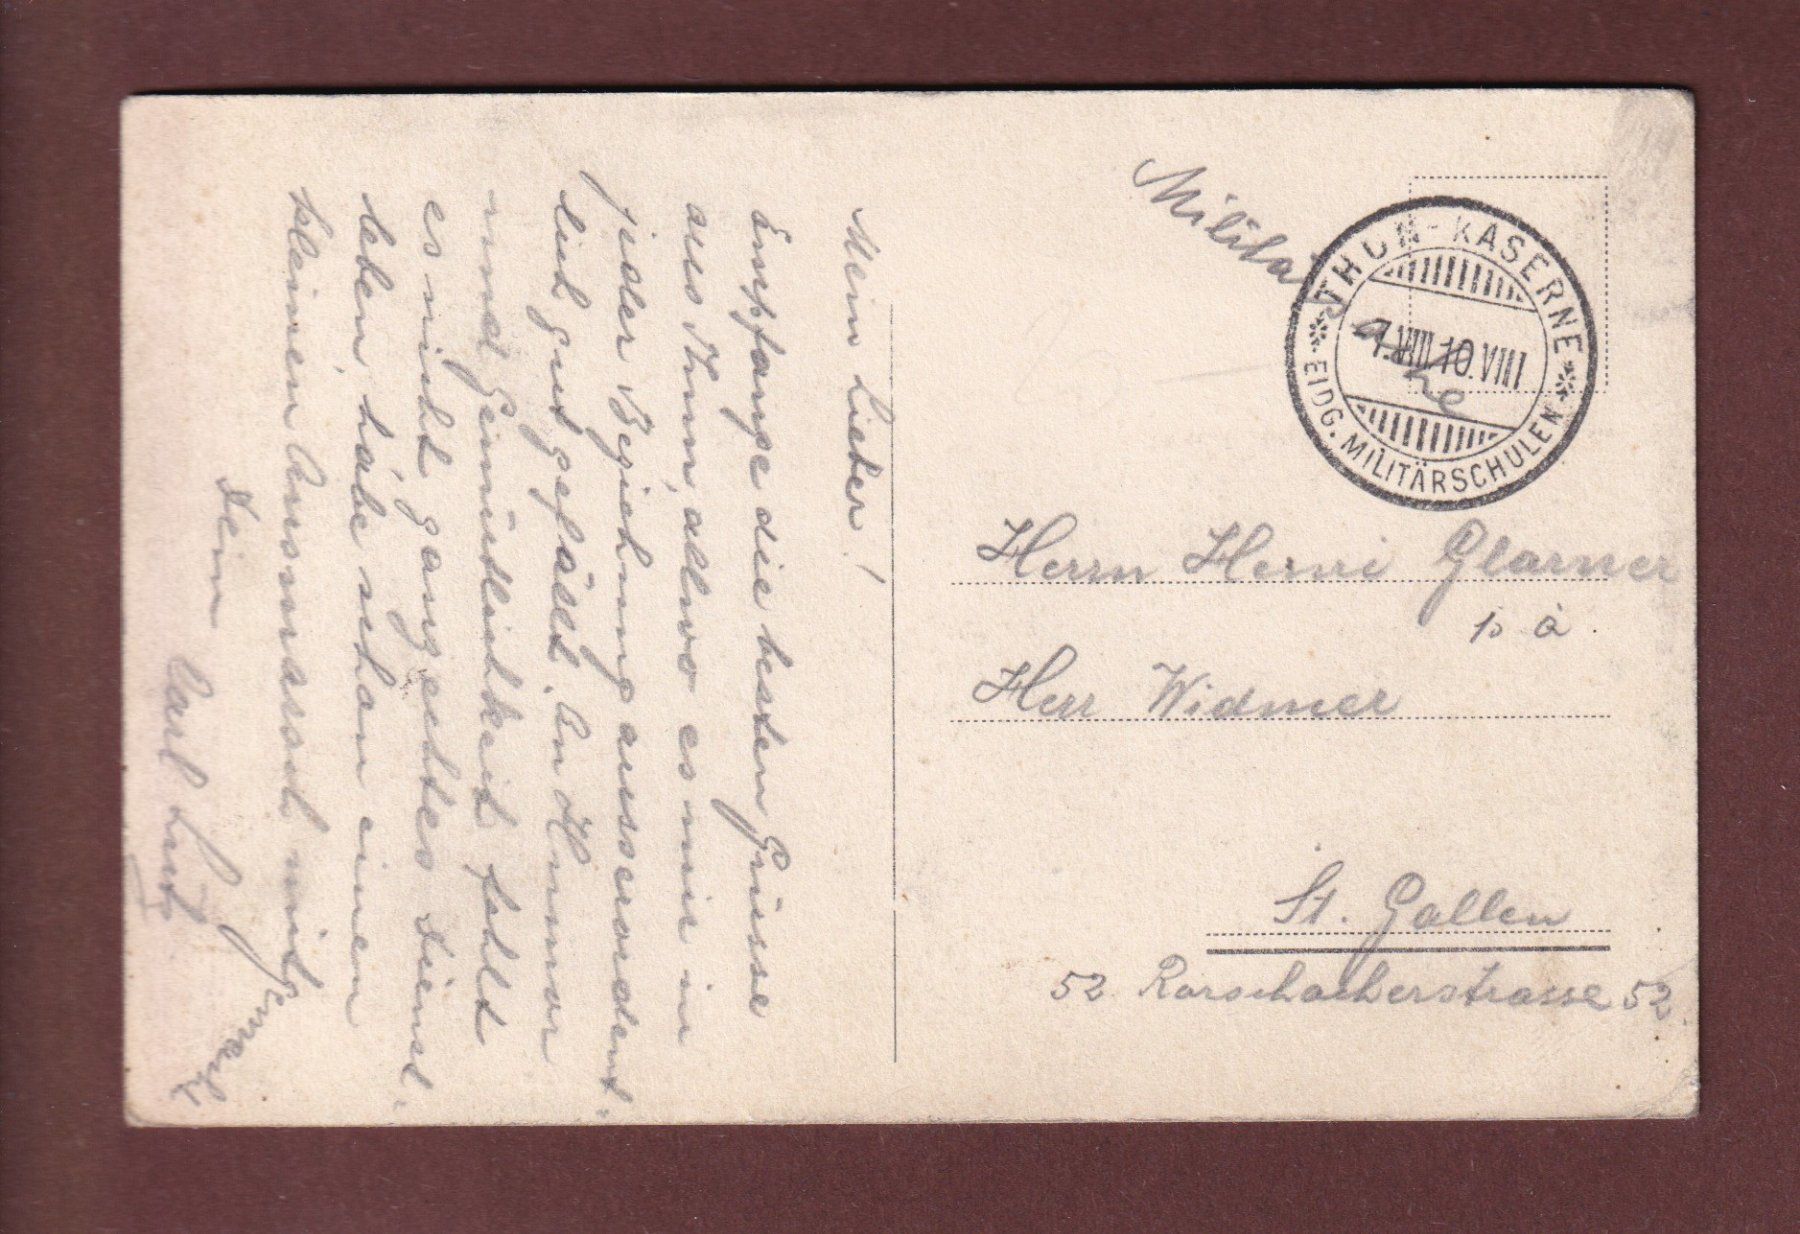 Mein Lieber!
Empfange die besten Grüsse
aus Thun, allwo es mir in
jeder Beziehung ausserordent-
lich gut gefällt. An Humor
und Gemütlichkeit fehlt
es nicht ganz echtes Dienst-
leben, habe schon einen
kleinen Ausmarsch mit
Dein
Carl Lutz
Militär
THUN-KASERNE
7.VIII.10.VIII
EIDG. MILITÄRSCHULEN
Herrn Henri Glarner
p à.
Herr Widmer
St. Gallen
52 Rorschacherstrasse 52.